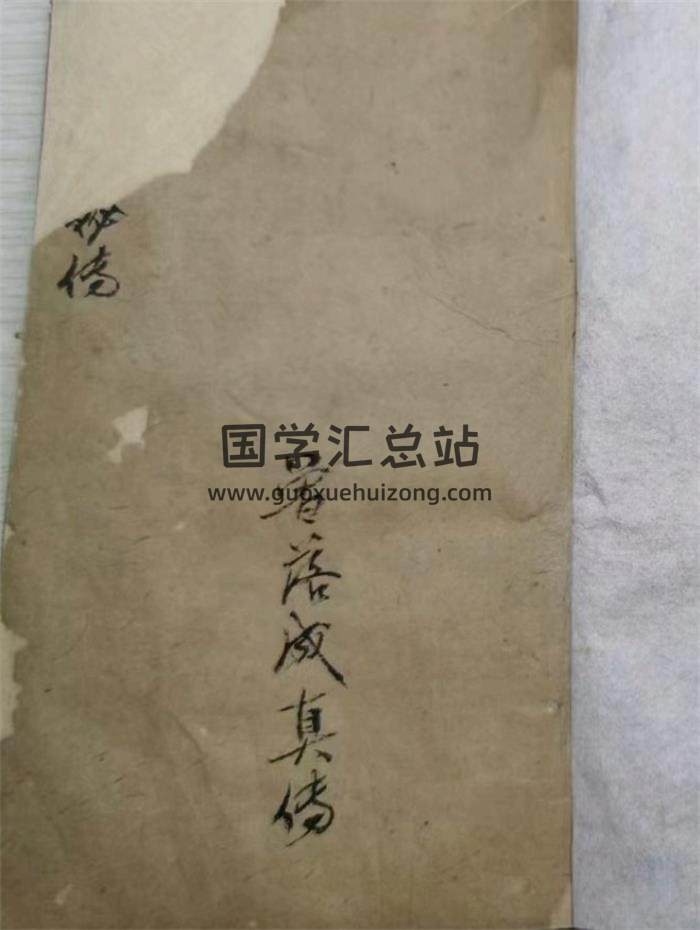 国学汇总站
www.guoxuehuizong.com
落成真傳
秘傳